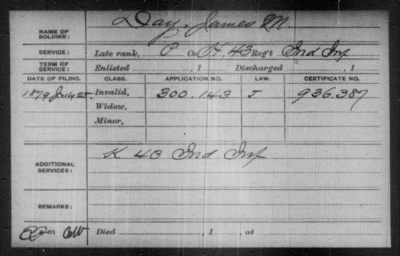 NAME OF SOLDIER: Day, James M.
SERVICE: Late rank, P Co. H, 43 Reg't Ind Inf
TERM OF SERVICE: Enlisted , 1 Discharged , 1
DATE OF FILING. CLASS. APPLICATION NO. LAW. CERTIFICATE NO.
1879 July 25 Invalid, 300.143 J 936.387
Widow,
Minor,
ADDITIONAL SERVICES: K 43 Ind Inf
REMARKS:
Died , 1 , at